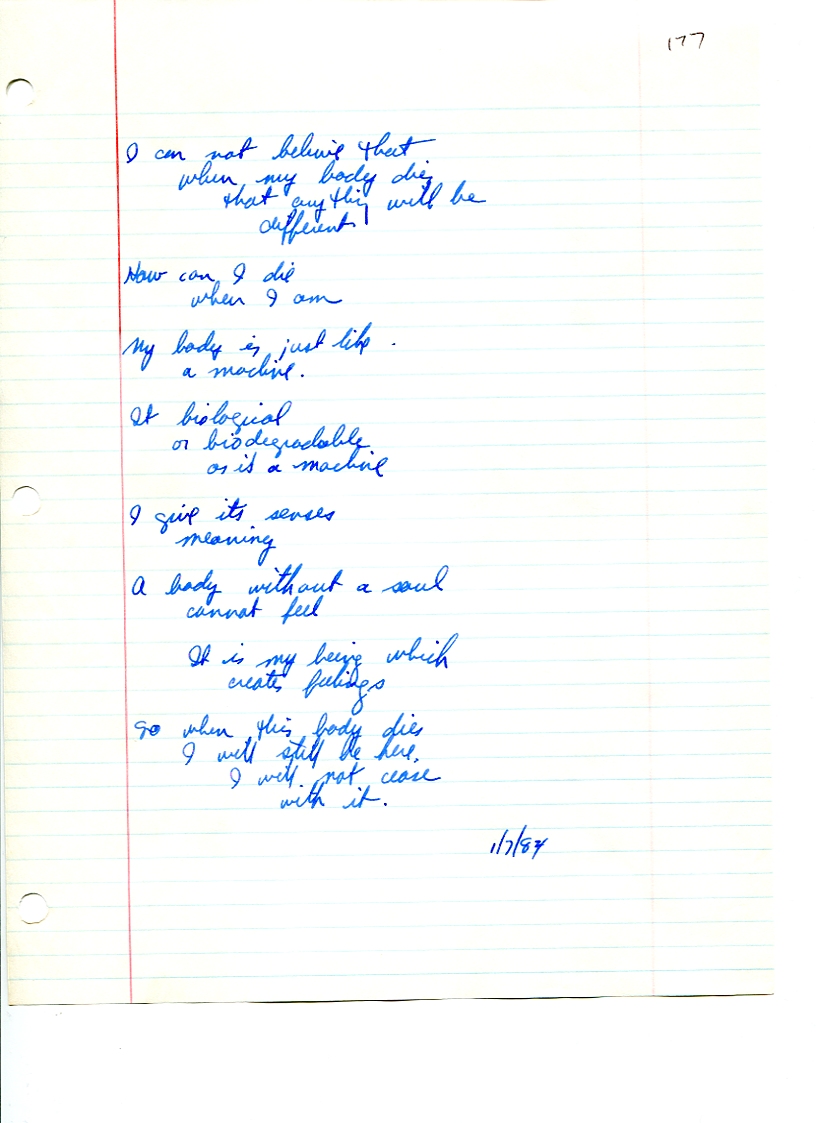 177
I can not believe that
when my body dies
that anything will be
different!
How can I die
when I am
My body is just like
a machine.
It biological
or biodegradable
as is a machine
I give its senses
meaning
A body without a soul
cannot feel
It is my being which
creates feelings
So when this body dies
I will still be here.
I will not cease
with it.
1/7/84